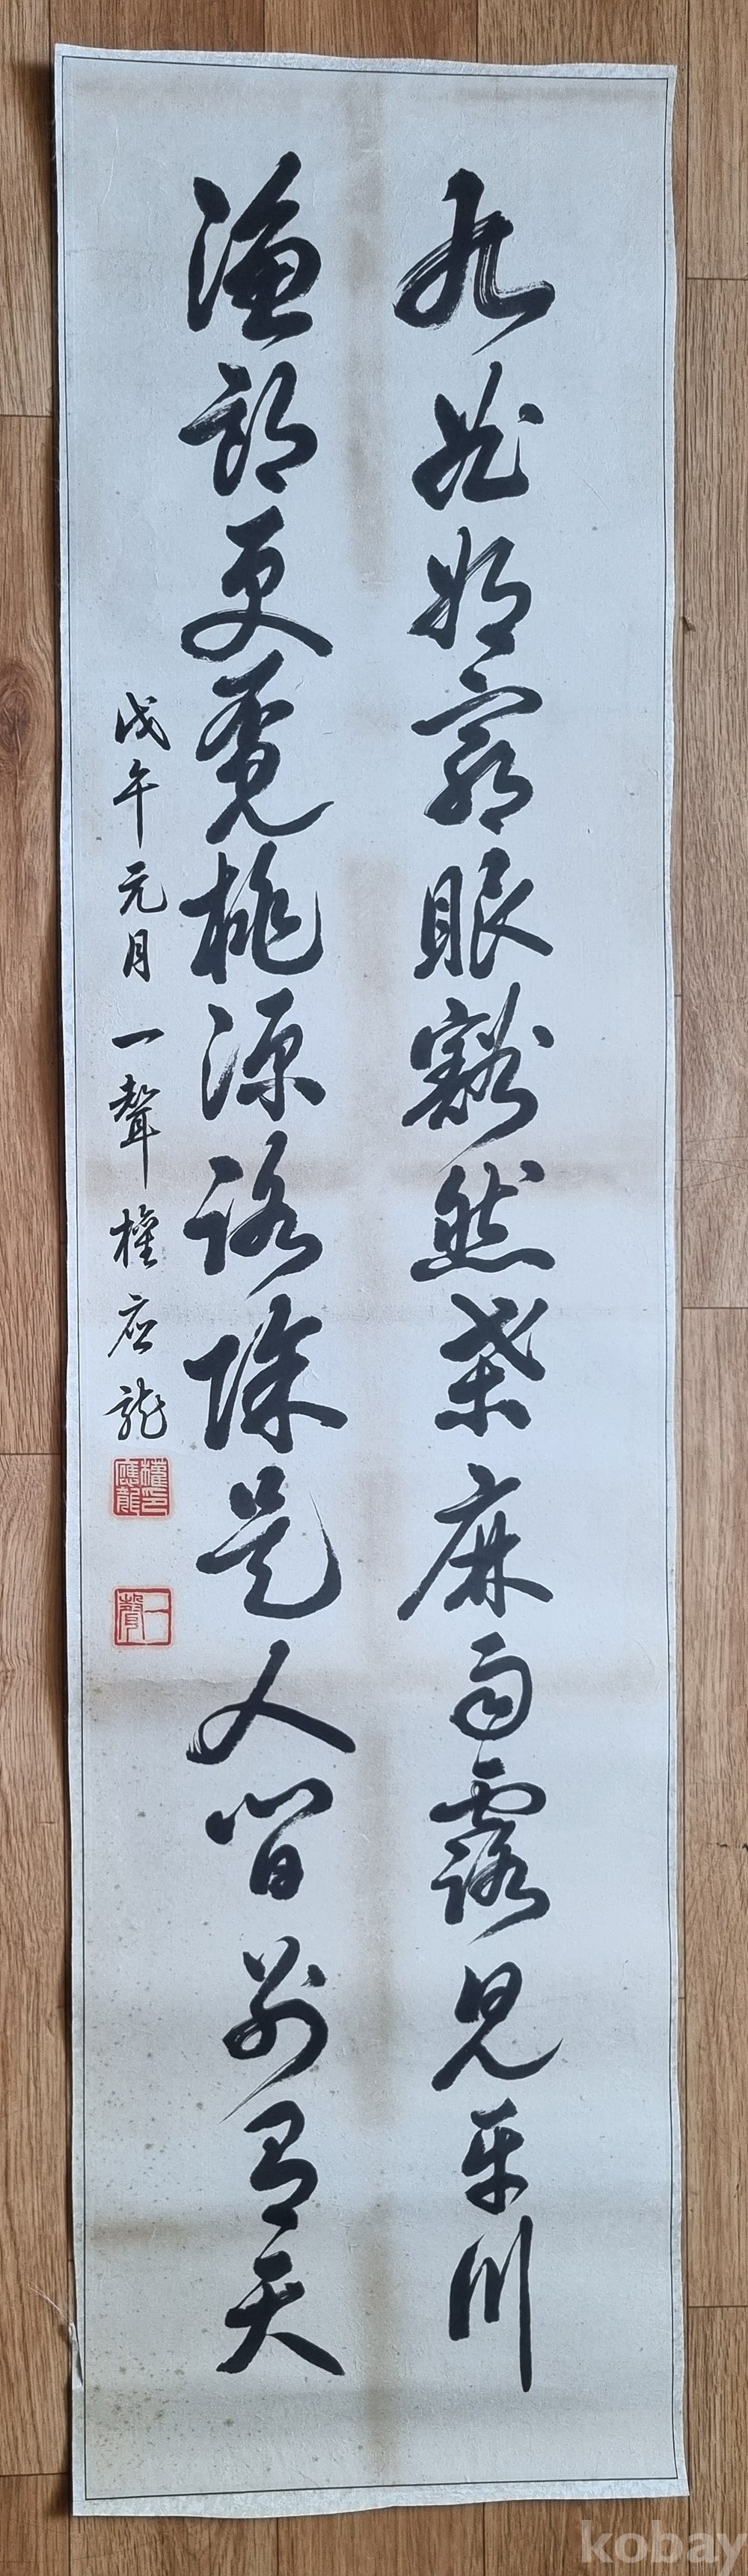 九曲將窮眼豁然桑麻雨露見平川
漁郎更覓桃源路除是人間別有天
戊午元月 一聲 權應龍
權應龍印
一聲
kobay